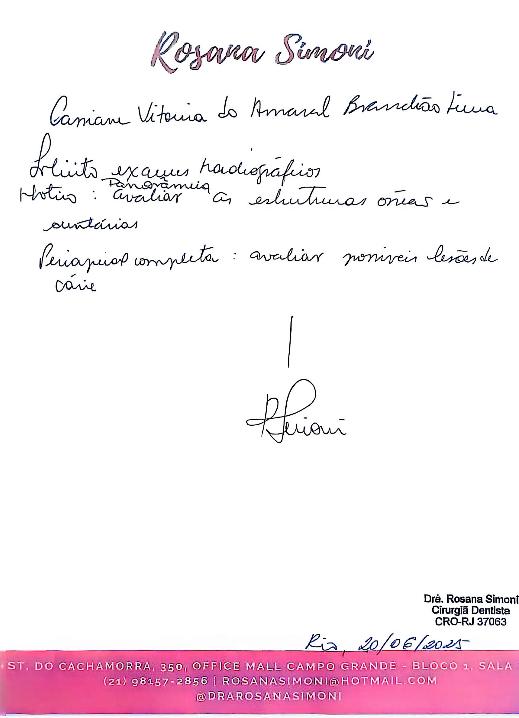 Rosana Simoni
Camiane Vitoria do Amaral Brandão Lima
Solicito exames radiográficos
Panorâmica
Motivo : avaliar as estruturas ósseas e
dentárias
Periapical completa : avaliar possíveis lesões de
cárie
RSimoni
Drê. Rosana Simoni
Cirurgiã Dentista
CRO-RJ 37063
Rio, 20/06/2025
ST. DO CACHAMORRA, 350, OFFICE MALL CAMPO GRANDE - BLOCO 1, SALA
(21) 98157-2856 | ROSANASIMONI@HOTMAIL.COM
@DRAROSANASIMONI